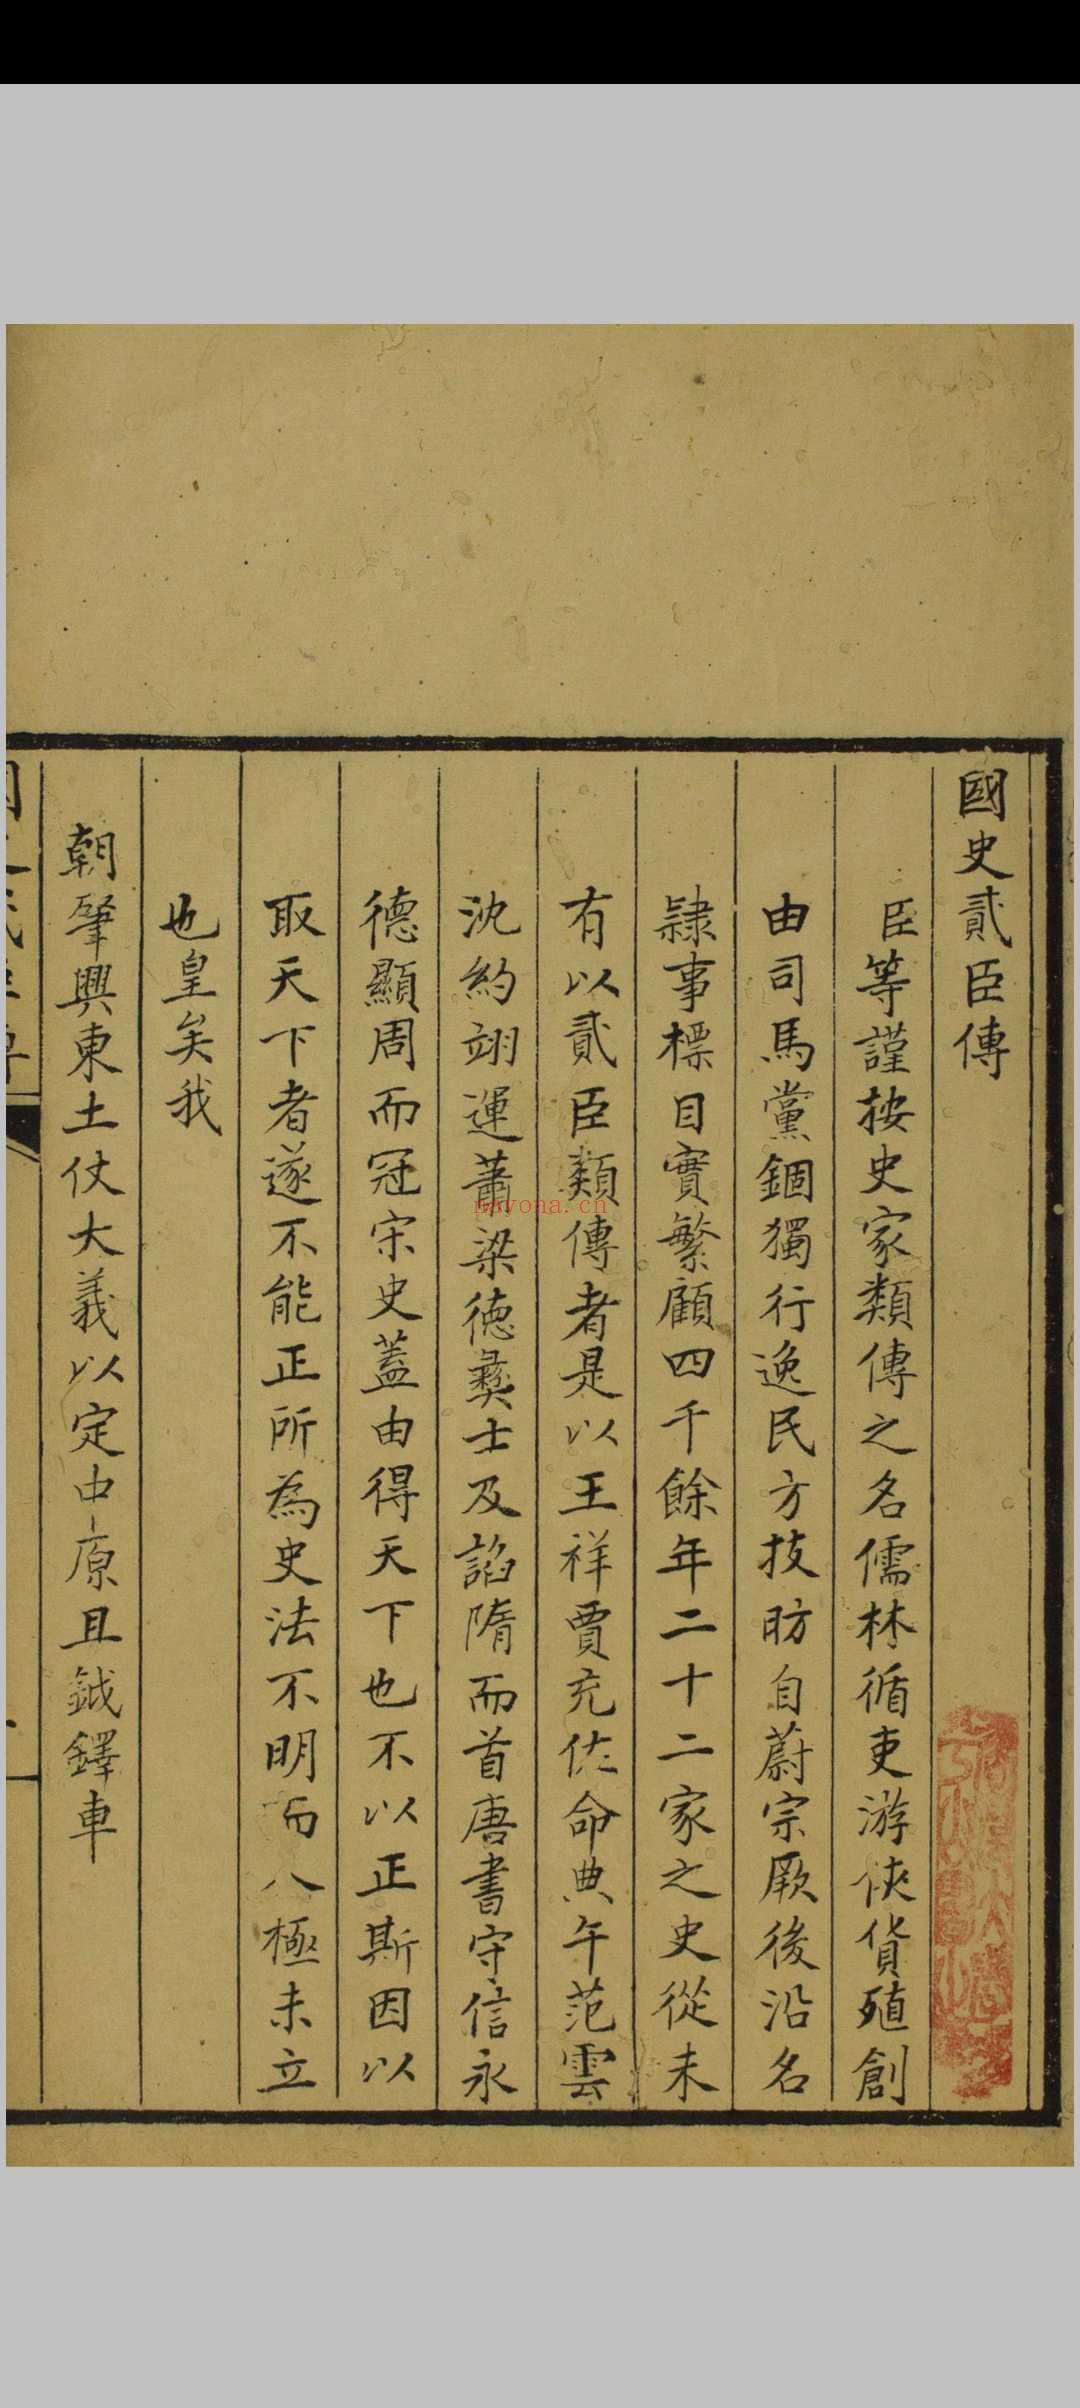 國史貳臣傳
臣等謹按史家類傳之名儒林循吏游俠貨殖創
由司馬黨錮獨行逸民方技昉自蔚宗厥後沿名
隷事標目實繁顧四千餘年二十二家之史從未
有以貳臣類傳者是以王祥賈充佐命典午范雲
沈約翊運蕭梁德彝士及諂隋而首唐書守信永
德顯周而冠宋史蓋由得天下也不以正斯因以
取天下者遂不能正所為史法不明而人極未立
也皇矣我
朝肇興東土仗大義以定中原且鉞鐸車
nayona.cn